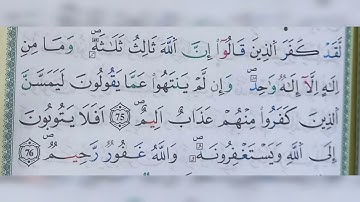 لَقَدْ كَفَرَ الَّذِينَ قَالُوٓا اِنَّ اللّٰهَ ثَالِثُ ثَلٰثَةٍۘ وَمَا مِنْ
اِلٰهٍ اِلَّٓا اِلٰهٌ وَاحِدٌۜ وَاِنْ لَمْ يَنْتَهُوا عَمَّا يَقُولُونَ لَيَمَسَّنَّ
الَّذِينَ كَفَرُوا مِنْهُمْ عَذَابٌ اَلِيمٌ 75 اَفَلَا يَتُوبُونَ
اِلَى اللّٰهِ وَيَسْتَغْفِرُونَهُۜ وَاللّٰهُ غَفُورٌ رَحِيمٌ 76